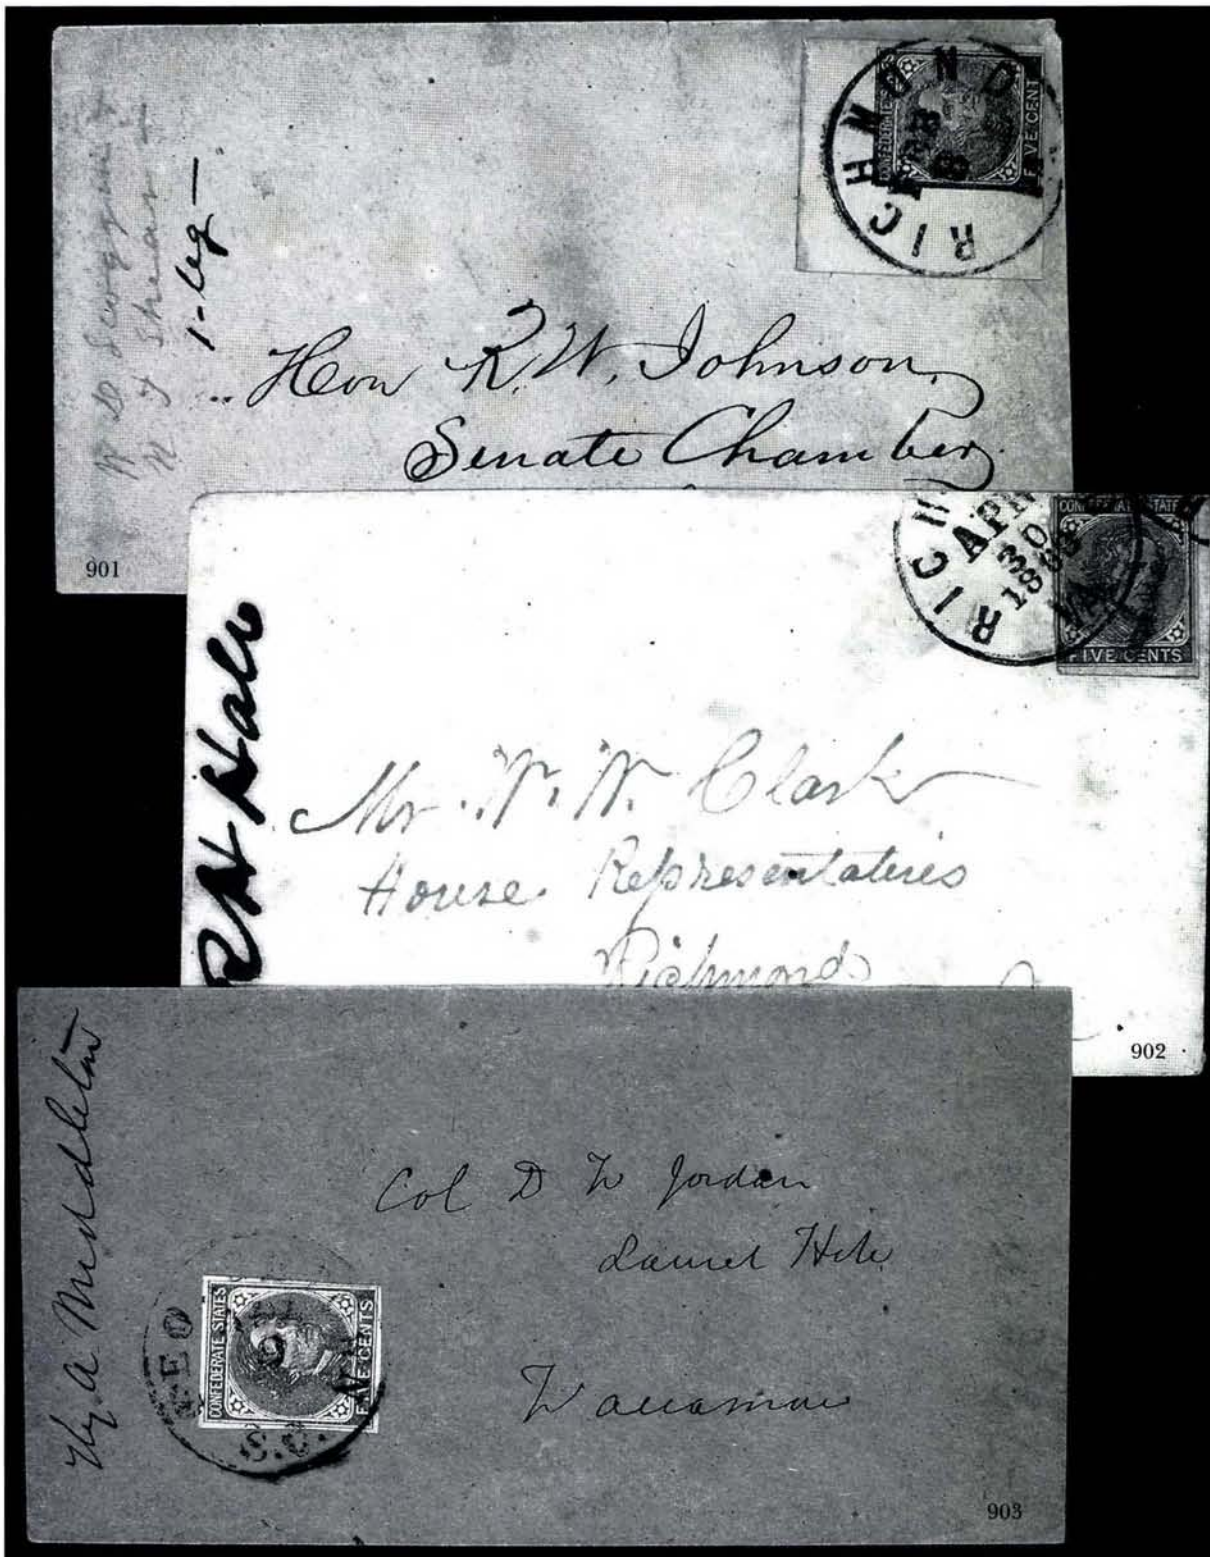 RICHMOND
CONFEDERATE STATES
FIVE CENT
1-leg —
Hon R. W. Johnson,
Senate Chamber,
901
RICH
APR
30
1863
VA
CONFEDERATE STATES
FIVE CENTS
Mr. W. W. Clark
House Representatives
Richmond
902
Hy A Middleton
Col D W Jordan
Laurel Hill
Waccamaw
GEO
S.C.
CONFEDERATE STATES
FIVE CENTS
903